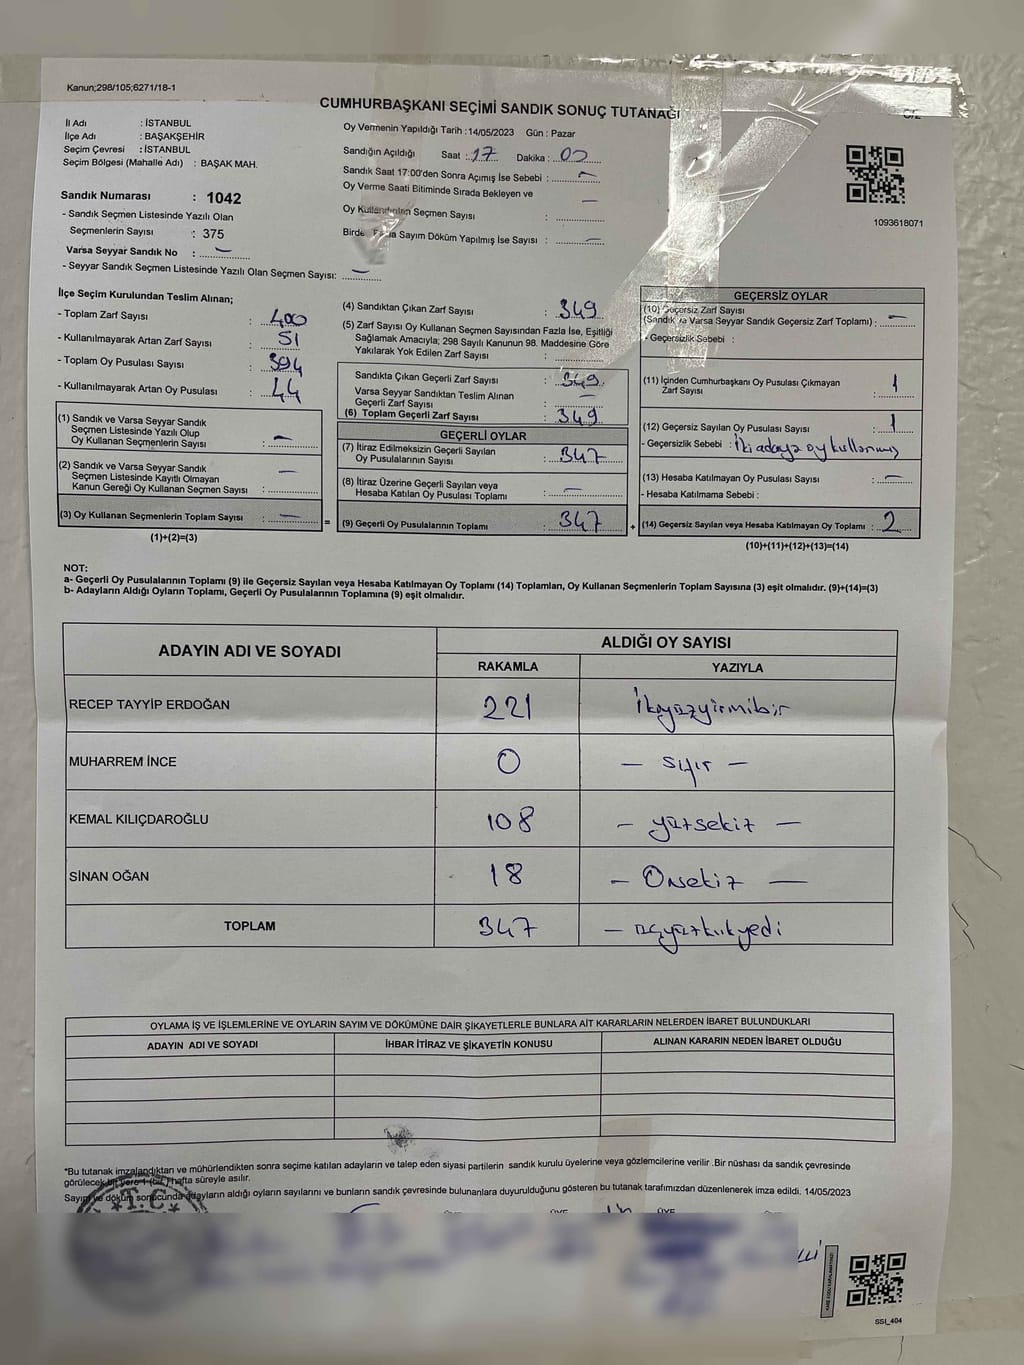 Kanun;298/105;6271/18-1
CUMHURBAŞKANI SEÇİMİ SANDIK SONUÇ TUTANAĞI
İl Adı : İSTANBUL
İlçe Adı : BAŞAKŞEHİR
Seçim Çevresi : İSTANBUL
Seçim Bölgesi (Mahalle Adı) : BAŞAK MAH.
Sandık Numarası : 1042
- Sandık Seçmen Listesinde Yazılı Olan
Seçmenlerin Sayısı : 375
Varsa Seyyar Sandık No : —
- Seyyar Sandık Seçmen Listesinde Yazılı Olan Seçmen Sayısı: —
Oy Vermenin Yapıldığı Tarih : 14/05/2023 Gün : Pazar
Sandığın Açıldığı Saat : 17 Dakika : 00
Sandık Saat 17:00'den Sonra Açımış İse Sebebi : —
Oy Verme Saati Bitiminde Sırada Bekleyen ve —
Oy Kullandırılan Seçmen Sayısı :
Birden Fazla Sayım Döküm Yapılmış İse Sayısı : —
1093618071
İlçe Seçim Kurulundan Teslim Alınan;
- Toplam Zarf Sayısı : 400
- Kullanılmayarak Artan Zarf Sayısı : 51
- Toplam Oy Pusulası Sayısı : 394
- Kullanılmayarak Artan Oy Pusulası : 44
(1) Sandık ve Varsa Seyyar Sandık
Seçmen Listesinde Yazılı Olup
Oy Kullanan Seçmenlerin Sayısı : —
(2) Sandık ve Varsa Seyyar Sandık
Seçmen Listesinde Kayıtlı Olmayan
Kanun Gereği Oy Kullanan Seçmen Sayısı : —
(3) Oy Kullanan Seçmenlerin Toplam Sayısı : —
(1)+(2)=(3)
=
(4) Sandıktan Çıkan Zarf Sayısı : 349
(5) Zarf Sayısı Oy Kullanan Seçmen Sayısından Fazla İse, Eşitliği
Sağlamak Amacıyla; 298 Sayılı Kanunun 98. Maddesine Göre
Yakılarak Yok Edilen Zarf Sayısı :
Sandıkta Çıkan Geçerli Zarf Sayısı : 349
Varsa Seyyar Sandıktan Teslim Alınan
Geçerli Zarf Sayısı : —
(6) Toplam Geçerli Zarf Sayısı : 349
GEÇERLİ OYLAR
(7) İtiraz Edilmeksizin Geçerli Sayılan
Oy Pusulalarının Sayısı : 347
(8) İtiraz Üzerine Geçerli Sayılan veya
Hesaba Katılan Oy Pusulası Toplamı : —
(9) Geçerli Oy Pusulalarının Toplamı : 347
+
GEÇERSİZ OYLAR
(10) Geçersiz Zarf Sayısı
(Sandık ve Varsa Seyyar Sandık Geçersiz Zarf Toplamı) : —
- Geçersizlik Sebebi :
(11) İçinden Cumhurbaşkanı Oy Pusulası Çıkmayan
Zarf Sayısı : 1
(12) Geçersiz Sayılan Oy Pusulası Sayısı : 1
- Geçersizlik Sebebi : İki adaya oy kullanmış
(13) Hesaba Katılmayan Oy Pusulası Sayısı : —
- Hesaba Katılmama Sebebi :
(14) Geçersiz Sayılan veya Hesaba Katılmayan Oy Toplamı : 2
(10)+(11)+(12)+(13)=(14)
NOT:
a- Geçerli Oy Pusulalarının Toplamı (9) ile Geçersiz Sayılan veya Hesaba Katılmayan Oy Toplamı (14) Toplamları, Oy Kullanan Seçmenlerin Toplam Sayısına (3) eşit olmalıdır. (9)+(14)=(3)
b- Adayların Aldığı Oyların Toplamı, Geçerli Oy Pusulalarının Toplamına (9) eşit olmalıdır.
ADAYIN ADI VE SOYADI
ALDIĞI OY SAYISI
RAKAMLA YAZIYLA
RECEP TAYYİP ERDOĞAN 221 İkiyüzyirmibir
MUHARREM İNCE 0 — sıfır —
KEMAL KILIÇDAROĞLU 108 — yüzsekiz —
SİNAN OĞAN 18 — Onsekiz —
TOPLAM 347 — üçyüzkırkyedi
OYLAMA İŞ VE İŞLEMLERİNE VE OYLARIN SAYIM VE DÖKÜMÜNE DAİR ŞİKAYETLERLE BUNLARA AİT KARARLARIN NELERDEN İBARET BULUNDUKLARI
ADAYIN ADI VE SOYADI İHBAR İTİRAZ VE ŞİKAYETİN KONUSU ALINAN KARARIN NEDEN İBARET OLDUĞU
*Bu tutanak imzalandıktan ve mühürlendikten sonra seçime katılan adayların ve talep eden siyasi partilerin sandık kurulu üyelerine veya gözlemcilerine verilir .Bir nüshası da sandık çevresinde
görülecek bir yere 1 (bir ) hafta süreyle asılır.
Sayım ve döküm sonucunda adayların aldığı oyların sayılarını ve bunların sandık çevresinde bulunanlara duyurulduğunu gösteren bu tutanak tarafımızdan düzenlenerek imza edildi. 14/05/2023
*T.C*
ÜYE ÜYE
SSI_404